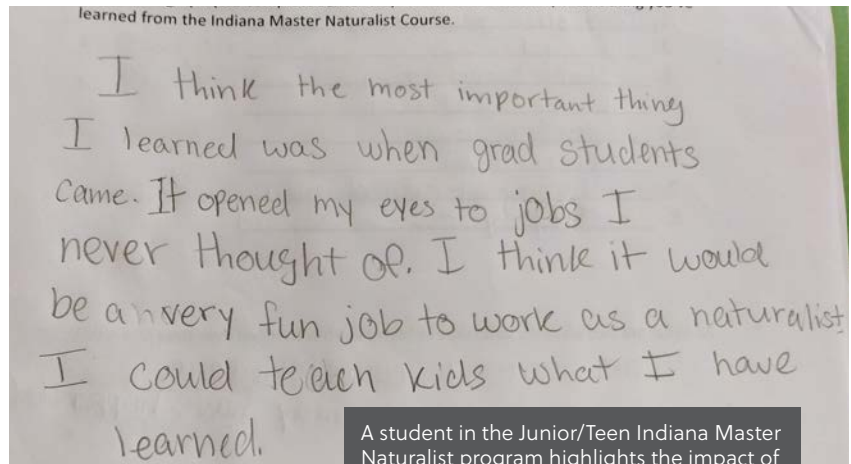 learned from the Indiana Master Naturalist Course.
I think the most important thing
I learned was when grad students
came. It opened my eyes to jobs I
never thought of. I think it would
be an very fun job to work as a naturalist.
I could teach kids what I have
learned.
A student in the Junior/Teen Indiana Master
Naturalist program highlights the impact of